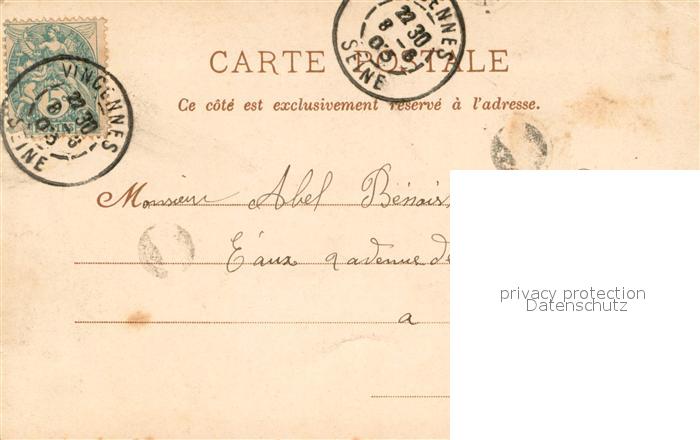 VINCENNES
22 30
8 - 6
03
SEINE
CARTE POSTALE
Ce côté est exclusivement réservé à l'adresse.
VINCENNES
22 30
8 - 6
03
SEINE
Monsieur Abel
Eaux
a
privacy protection
Datenschutz